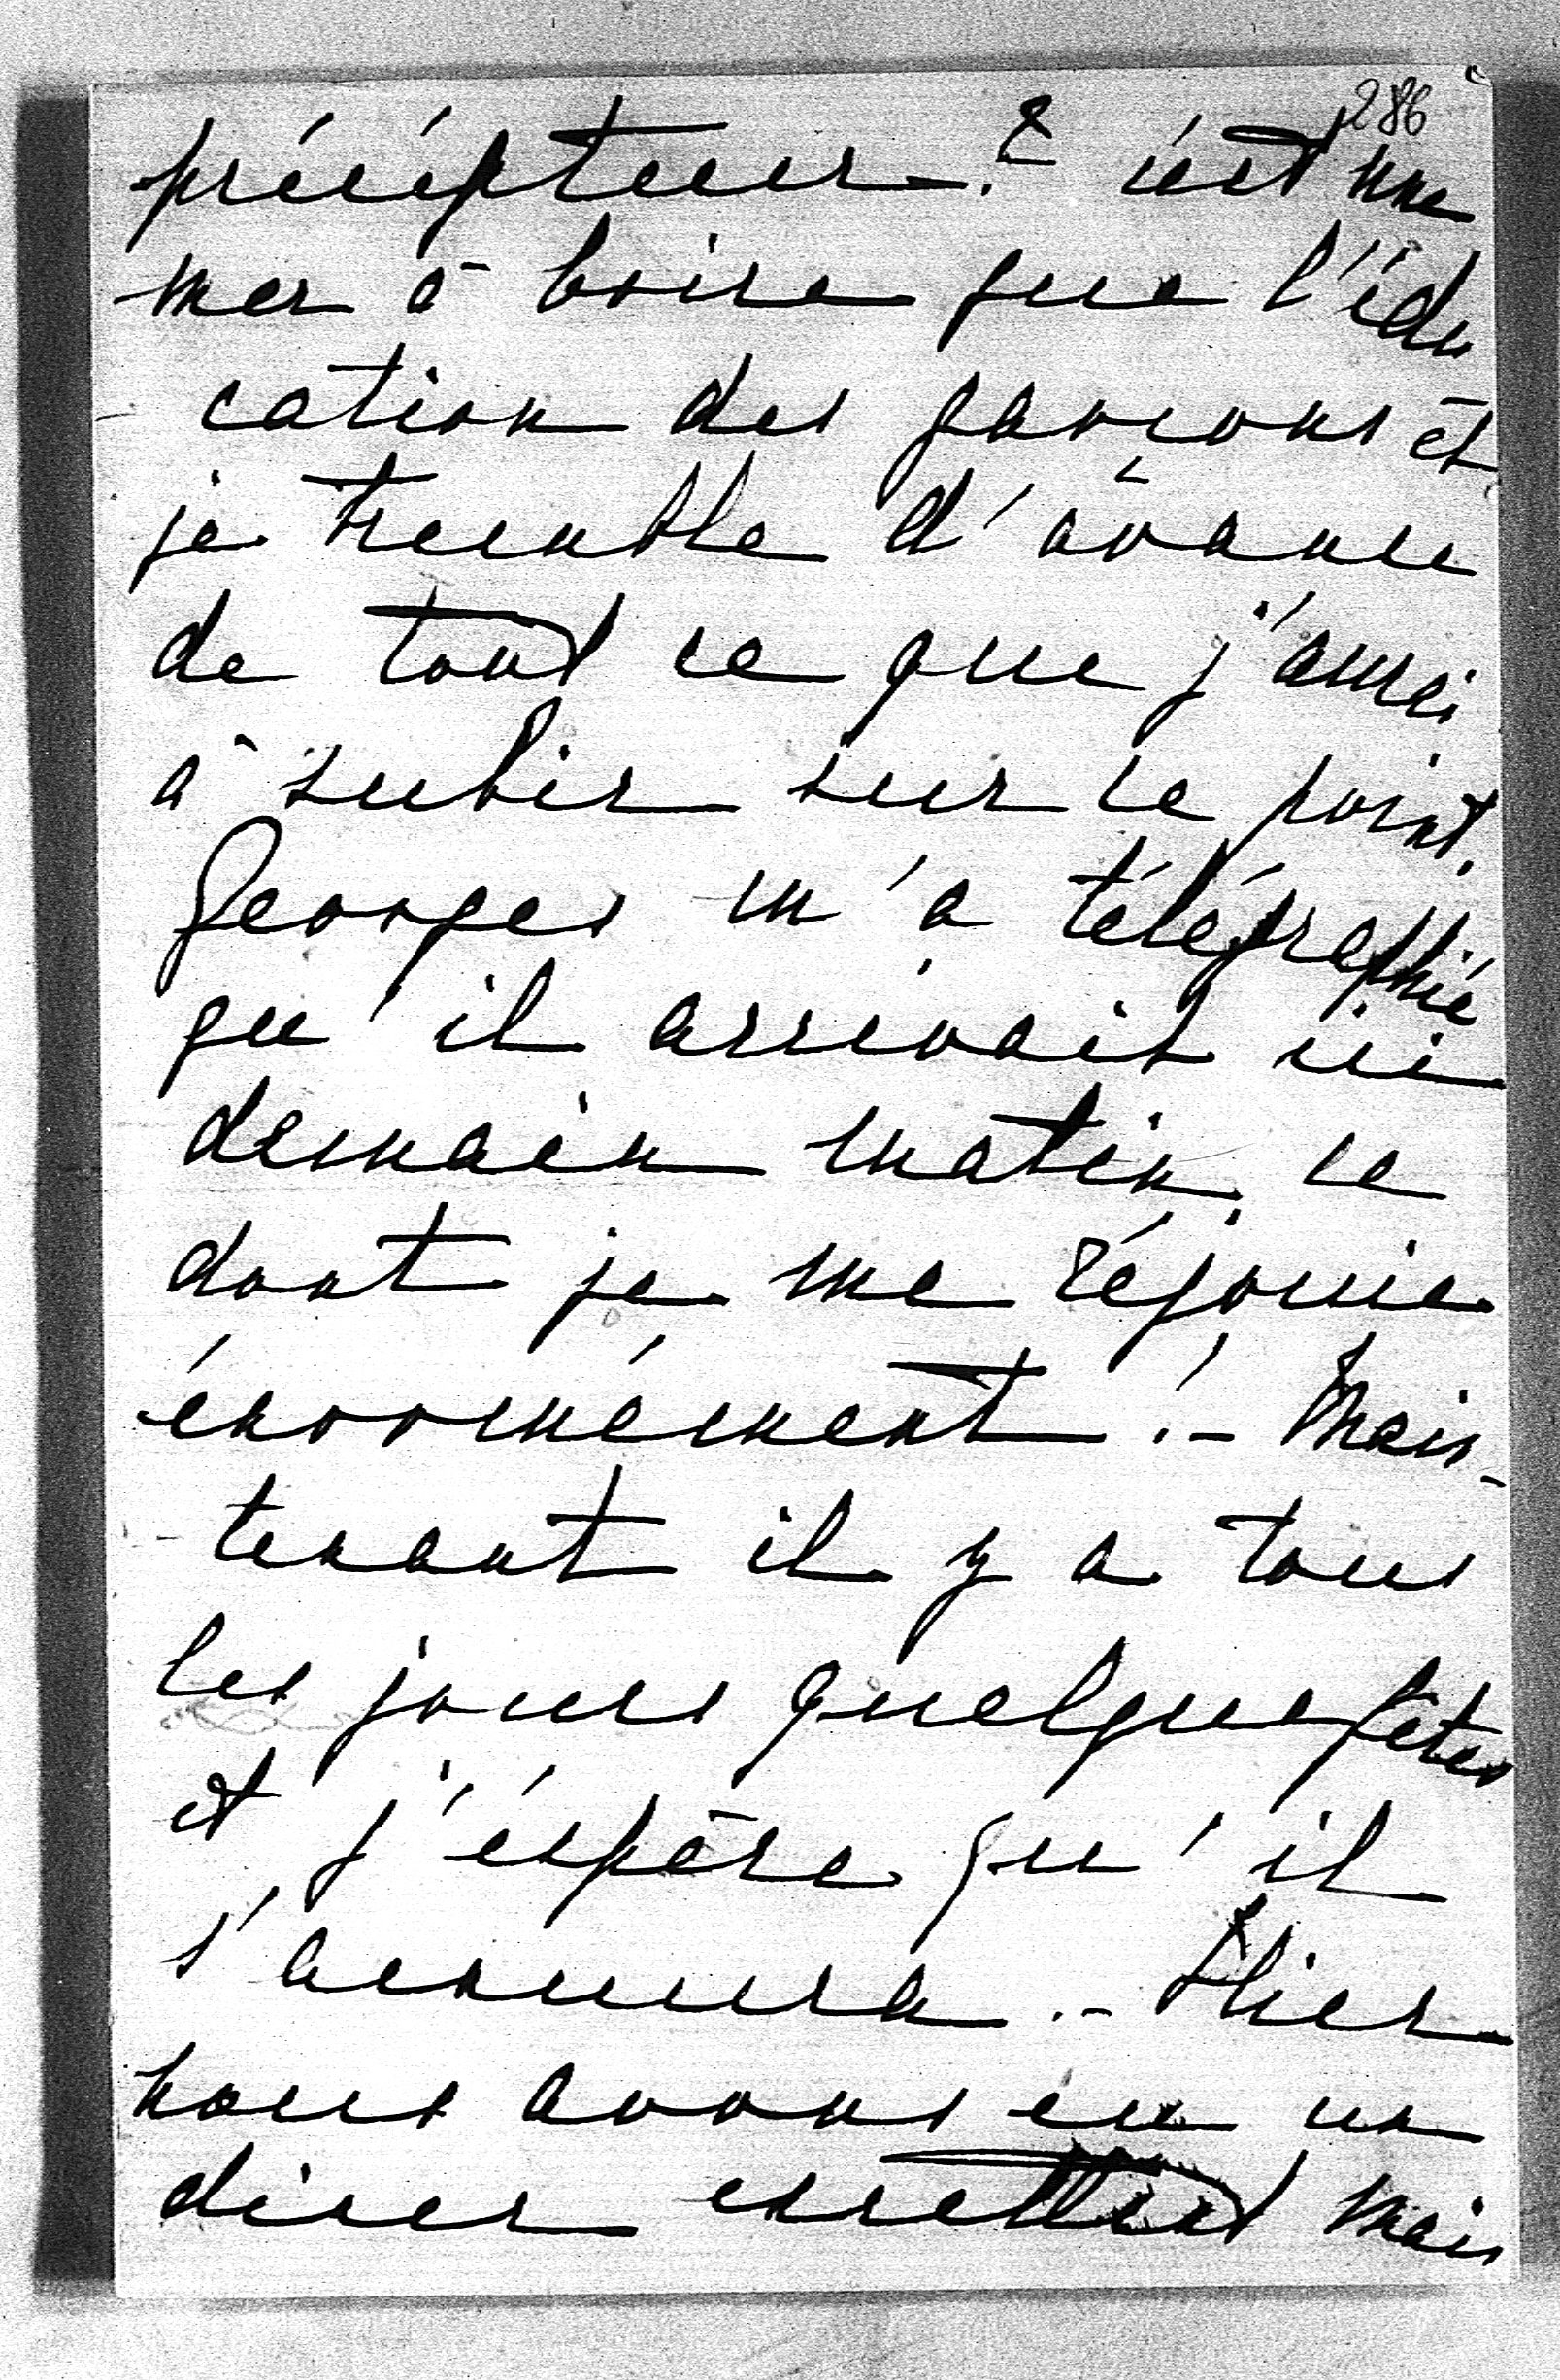 286
précépteur.? c'est une
mer à boire que l'édu
cation des garçons et
je tremble d'avance
de tout ce que j'aurai
à subir sur ce point.
Georges m'a télégraphié
qu'il arrivait ici
demain matin, ce
dont je me réjouie
énormément!- Main-
tenant il y a tous
les jours quelque fêtes
et j'éspère qu'il
s'amusera.- Hier
nous avons eu un
diner mais